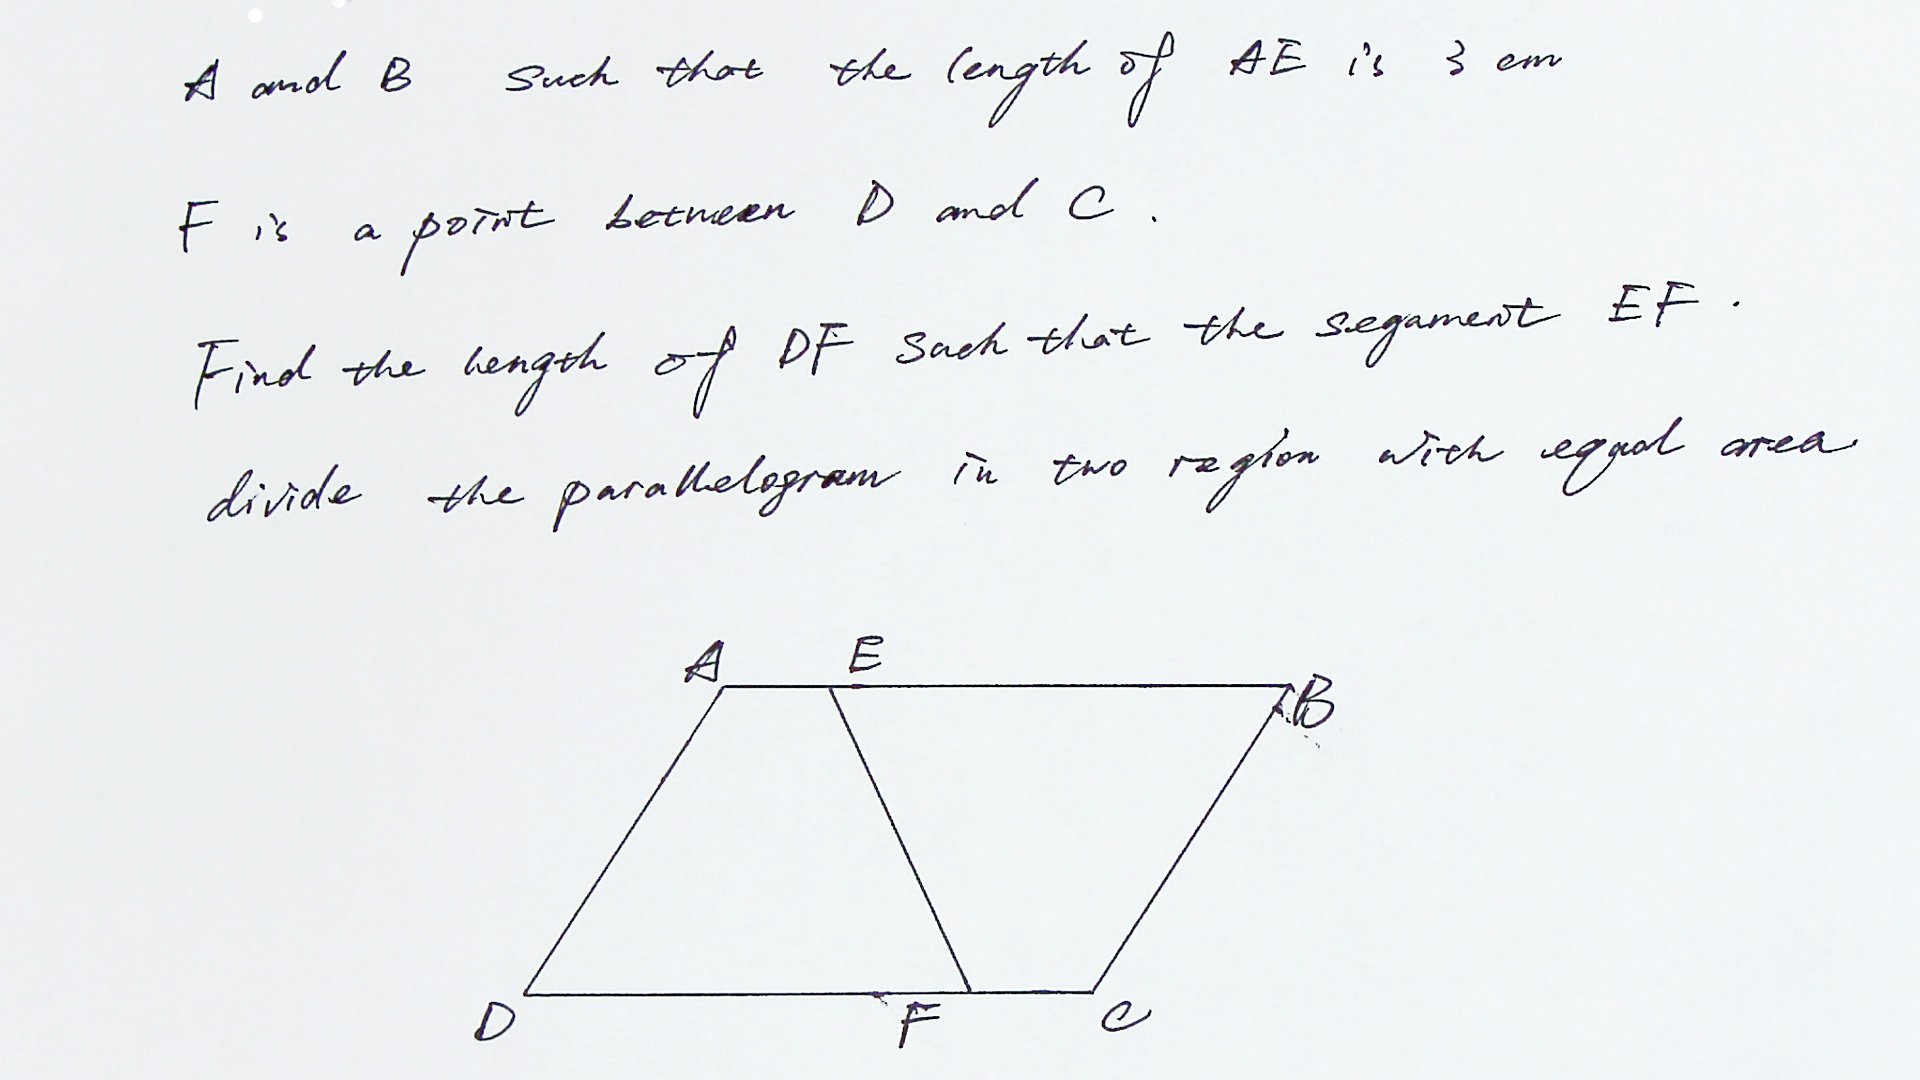 A and B such that the length of AE is 3 cm
F is a point between D and C.
Find the length of DF such that the segament EF.
divide the parallelogram in two region with equal area
A E
B
D F C